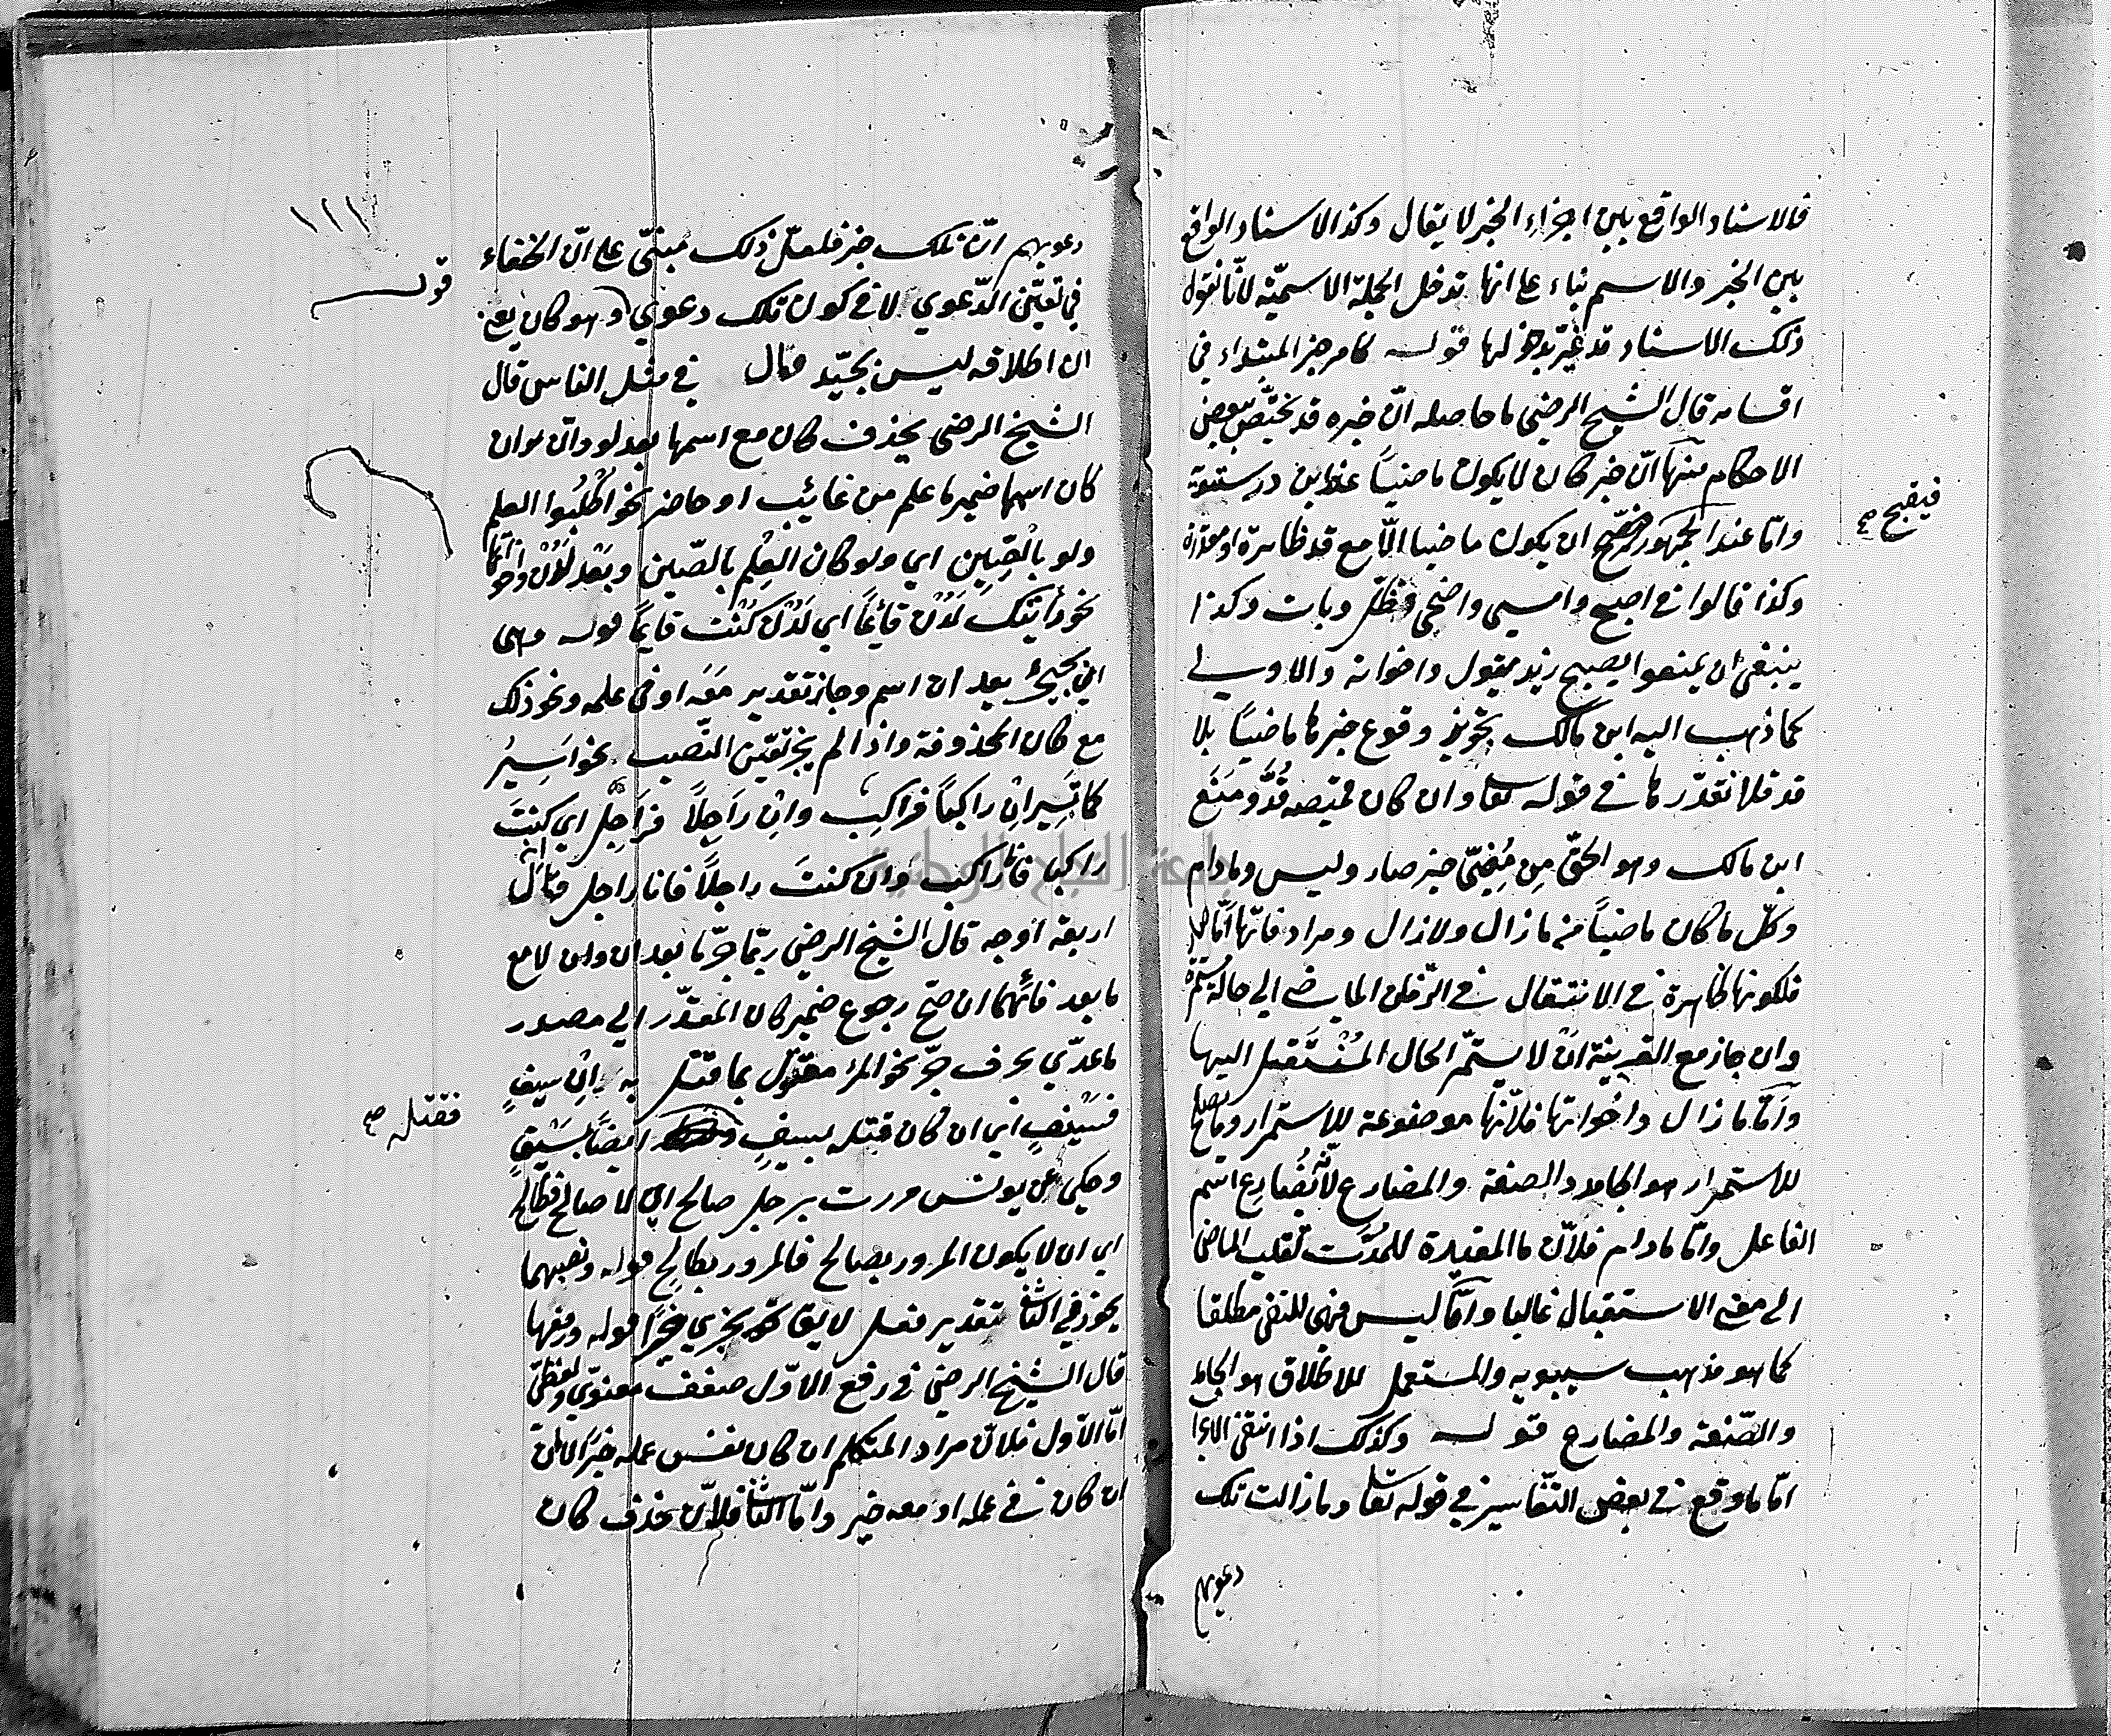 فالاسناد الواقع بين اجزاء الخبر لا يقال وكذا الاسناد الواقع
بين الخبر والاسم بناء على انها تدخل الجملة الاسميّة لانّا نقول
ذلك الاسناد قد غيّر بدخولها قوله كامر خبر المبتداء في
اقسامه قال الشيخ الرضي ما حاصله انّ خبره قد يختصّ ببعض
الاحكام منها انّ خبر كان لا يكون ماضياً عند ابن درستويه
وامّا عند الجمهور ان يكون ماضيا الّا مع قد ظاهرة او مقدّرة
فيقبح صح
وكذا قالوا في اصبح وامسى واضحى وظلّ وبات وكذا
ينبغي ان يمنعوا يصبح زيد يقول واخواته والاولى
كما ذهب اليه ابن مالك تجويز وقوع خبرها ماضياً بلا
قد فلا نقدّرها في قوله تعا وان كان قميصه قُدَّ ومَنَعَ
ابن مالك وهو الحقّ مِن مُضِيّ خبر صار وليس ومادام
وكلّ ما كان ماضياً من مازال ولازال ومرادفاتها امّا صار
فلكونها ظاهرة في الانتقال في الزّمان الماضي الى حالة مستمرّة
وان جاز مع القرينة اَنْ لا يستمرّ الحال المُنْتَقل اليها
وامّا مازال واخواتها فلانّها موضوعة للاستمرار وما يصلح
للاستمرار هو الجامد والصفة والمضارع لانّه يُضارِع اسم
الفاعل وامّا مادام فلانّ ما المفيدة للمُدّة تقلب الماضي
الى معنى الاستقبال غالبا وامّا ليس فهي للنفي مطلقا
كما هو مذهب سيبويه والمستعمل للاطلاق هو الجامد
والصّفة والمضارع قوله وكذلك اذا انتقى الاعراب
امّا ما وقع في بعض التّفاسير في قوله تعا ومازالت تلك
دعويهم
دعويهم انّ تلك خبر فلعلّ ذلك مبنيّ على انّ الخفاء
في تعيّن الدّعوي لا في كون تلك دعوي وهو كان يعني
قوله
ان اطلاقه ليس بجيّد قال في مثل الناس قال
الشيخ الرضي يحذف كان مع اسمها بعد لو وان ان
كان اسمها ضمير ما علم من غائب او حاضر نحو اُطْلُبُوا العلم
ولو بالصّينِ اي ولو كان العِلْم بالصّين وبَعْد لَدُنْ واخواتها
نحو رأيتك لَدُنْ قائماً اي لَدُنْ كُنْتَ قايماً قوله وهي
اي يجيئ بعد ان اسم وجاز تقدير مَعَه او في عمله ونحو ذلك
مع كان المحذوفة واذا لم يجز تعيّن النّصب نحو اَسِيرُ
كما تَسِيرُ اِنْ راكباً فراكِب وانْ رَاجِلاً فرَاجِل اي كنتَ
راكبا فانا راكب وان كنتَ راجلاً فانا راجل قال
اربعة اوجه قال الشيخ الرضي ربّما جرّ ما بعد ان وان لا مع
ما بعد فائهما ان صحّ رجوع ضمير كان المقدّر الى مصدر
ما عدّي بحرف جرّ نحو المرْء مقتول بما قتل به اِنْ سيفٍ
فَسَيْفٍ اي ان كان قتله بسيفٍ ايضاً بسَيْفٍ
فقتله صح
وحكي عن يونس مررت برجل صالح اي لا صالح فطالح
اي ان لا يكون المرور بصالح فالمرور بطالح قوله ونصبهما
يجوز في الثاني تقدير فعل لايق نحو يجزي خيراً قوله ورفعها
قال الشيخ الرضي في رفع الاوّل ضعف معنويّ ولفظيّ
امّا الاوّل فلانّ مراد المتكلم ان كان نفس عمله خيراً لا انّ
ان كان في عمله او معه خير وامّا الثاني فلانّ حذف كان